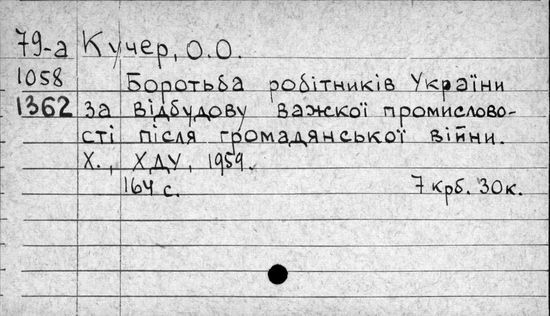 79-а Кучер, О.О.
1058 Боротьба робітників України
1362 за відбудову важкої промислово-
сті після громадянської війни.
Х., ХДУ, 1959.
164 с. 7 крб. 30 к.